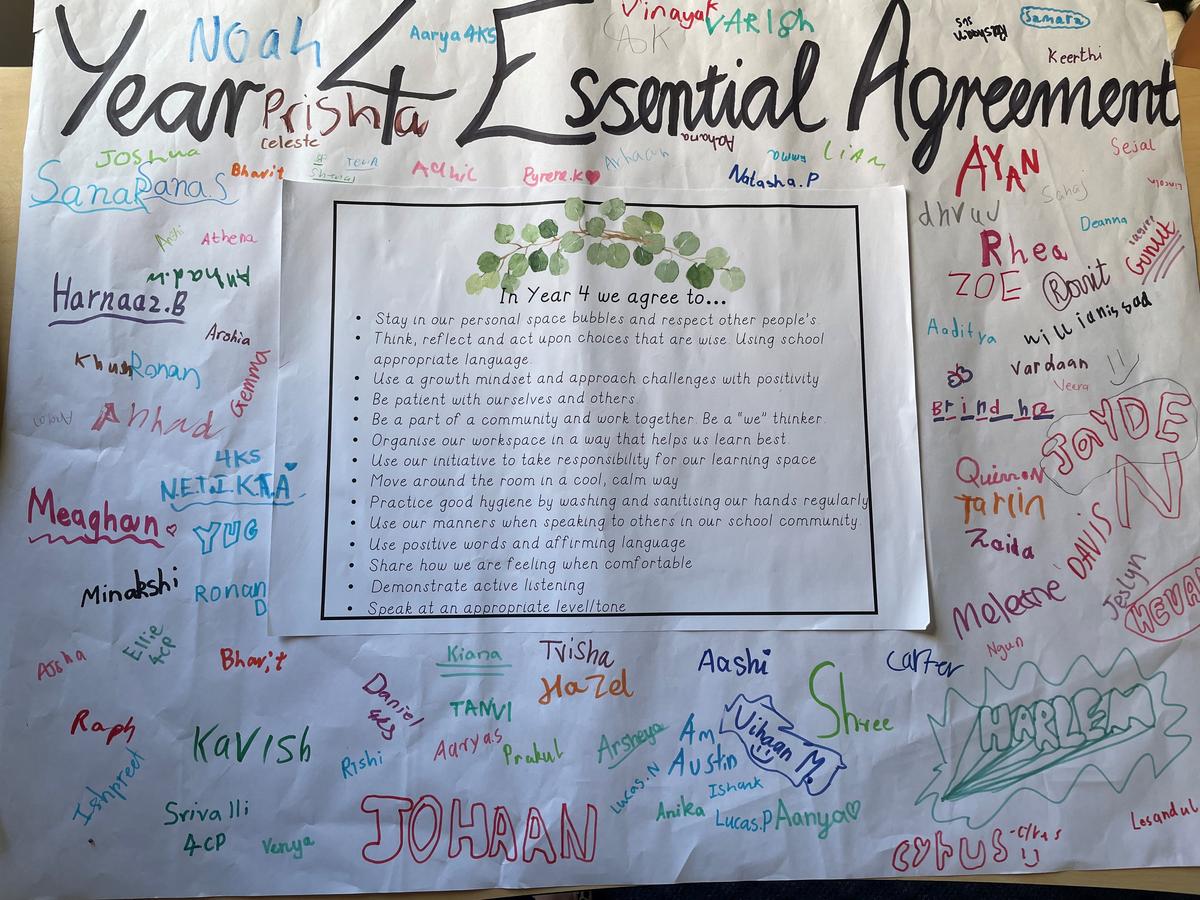 NOAH
Aarya 4KS
Vinayak
VARISh
AK
Samara
Keerthi
Year 4 Essential Agreement
Prishta
Celeste
Joshua
Bharit
Adhic
Pyrene.K
Arhaan
Natasha.P
Emma
LiAM
AYAN
Sejal
Sana
Sanas
Sahaj
dhruv
Deanna
Athena
Rhea
Gunnit
Harnaaz.B
ZOE
Ronit
Arohia
Aaditya
williamissad
Khush
Ronan
Gemma
Vardaan
Veera
Ahhad
Brindha
JAYDEN
4KS
N.E.T.I.K.A
Quinnon
Tarlin
Meaghan
YUG
Zaida
DAVIS
Minakshi
Ronan D
Meleane
Jeslyn
In Year 4 we agree to...
• Stay in our personal space bubbles and respect other people's.
• Think, reflect and act upon choices that are wise. Using school
appropriate language.
• Use a growth mindset and approach challenges with positivity
• Be patient with ourselves and others.
• Be a part of a community and work together. Be a "we" thinker.
• Organise our workspace in a way that helps us learn best.
• Use our initiative to take responsibility for our learning space
• Move around the room in a cool, calm way
• Practice good hygiene by washing and sanitising our hands regularly
• Use our manners when speaking to others in our school community.
• Use positive words and affirming language
• Share how we are feeling when comfortable
• Demonstrate active listening
• Speak at an appropriate level/tone
Ngun
Aisha
Ellie 4CP
Bharit
Kiana
Trisha
Aashi
Carter
Hazel
Daniel 4KS
TANVI
Shree
Raph
Kavish
Aarya S
Prakul
Arsheya
Am
Vihaan M.
HARLEM
Rishi
Austin
Ishpreet
Lucas.N
Ishank
Srivalli
4CP
Venya
JOHAAN
Anika
Lucas.P
Aanya
Lesandu
Cyrus